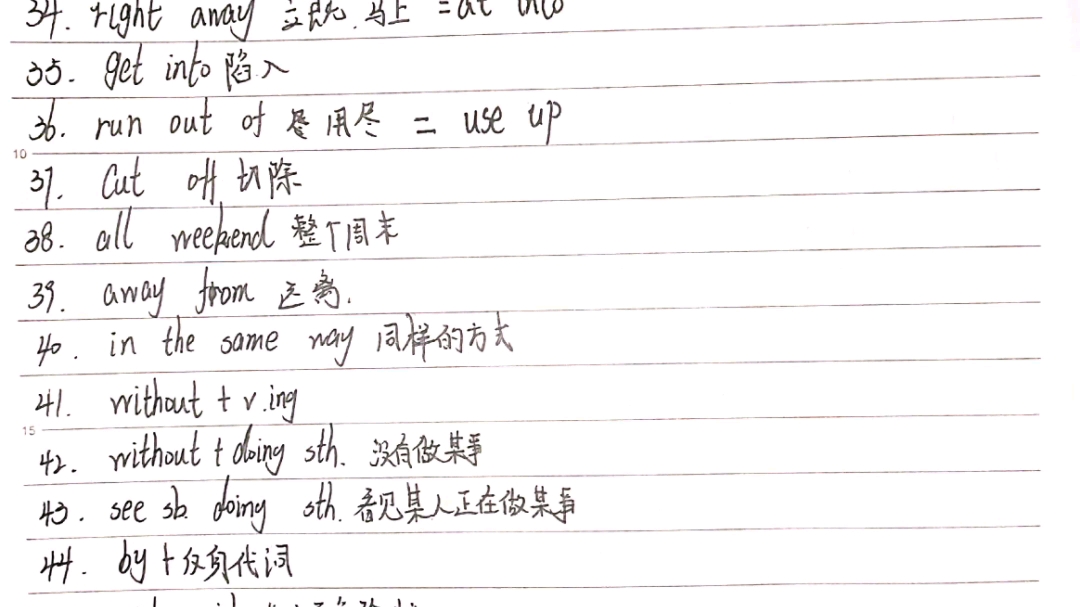 34. right away 立既.马上 = at
35. get into 陷入
36. run out of 用尽 = use up
10
37. Cut off 切除
38. all weekend 整个周末
39. away from 远离.
40. in the same way 同样的方式
41. without + v.ing
15
42. without + doing sth. 没有做某事
43. see sb. doing sth. 看见某人正在做某事
44. by + 反身代词